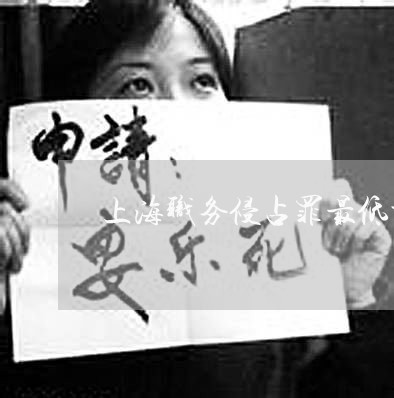 申請：
上海职务侵占罪最低
安乐死